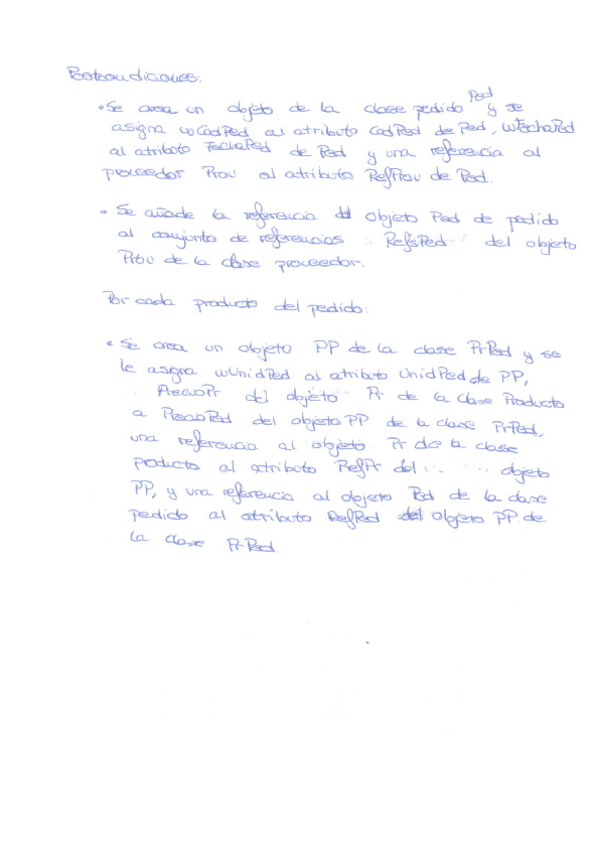 Postcondiciones:
• Se crea un objeto de la clase pedido Ped y se
asigna wCodPed al atributo CodPed de Ped, wFechaPed
al atributo FechaPed de Ped y una referencia al
proveedor Prov al atributo RefProv de Ped.
• Se añade la referencia del objeto Ped de pedido
al conjunto de referencias RefsPed del objeto
Prov de la clase proveedor.
Por cada producto del pedido:
• Se crea un objeto PP de la clase PrPed y se
le asigna wUnidPed al atributo UnidPed de PP,
PrecioPr del objeto Pr de la clase Producto
a PrecioPed del objeto PP de la clase PrPed,
una referencia al objeto Pr de la clase
producto al atributo RefPr del objeto
PP, y una referencia al objeto Ped de la clase
pedido al atributo RefPed del objeto PP de
la clase Pr-Ped